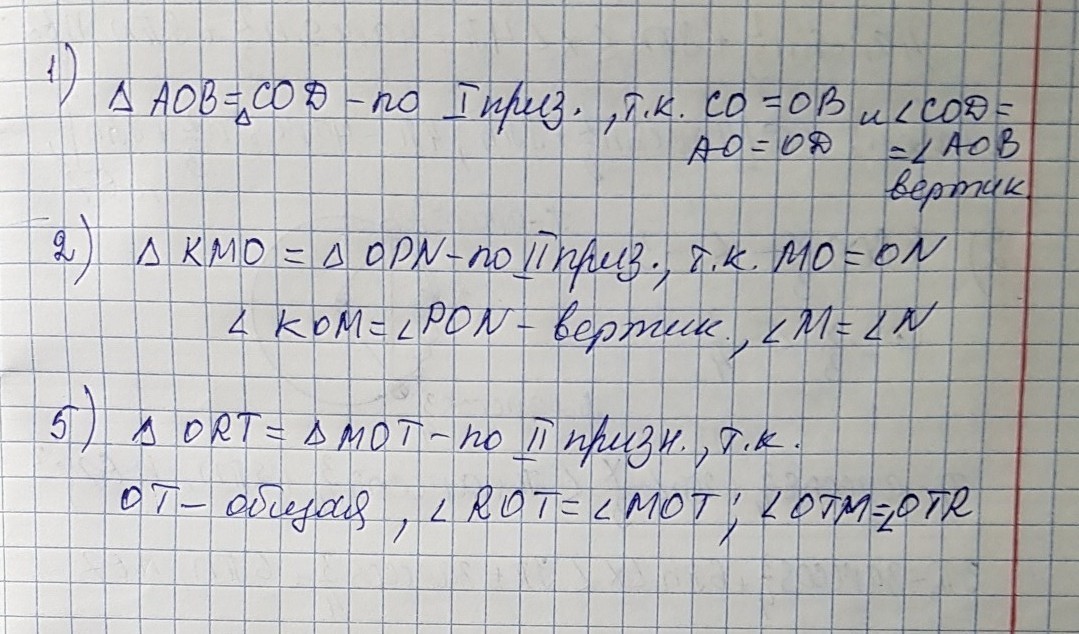 1)
△ AOB = △ COD - по I приз., т.к. CO = OB и ∠ COD =
AO = OD = ∠ AOB
вертик.
2) △ KMO = △ OPN - по II приз., т.к. MO = ON
∠ KOM = ∠ PON - вертик., ∠ M = ∠ N
5) △ ORT = △ MOT - по II призн., т.к.
OT - общая, ∠ ROT = ∠ MOT; ∠ OTM = ∠ OTR